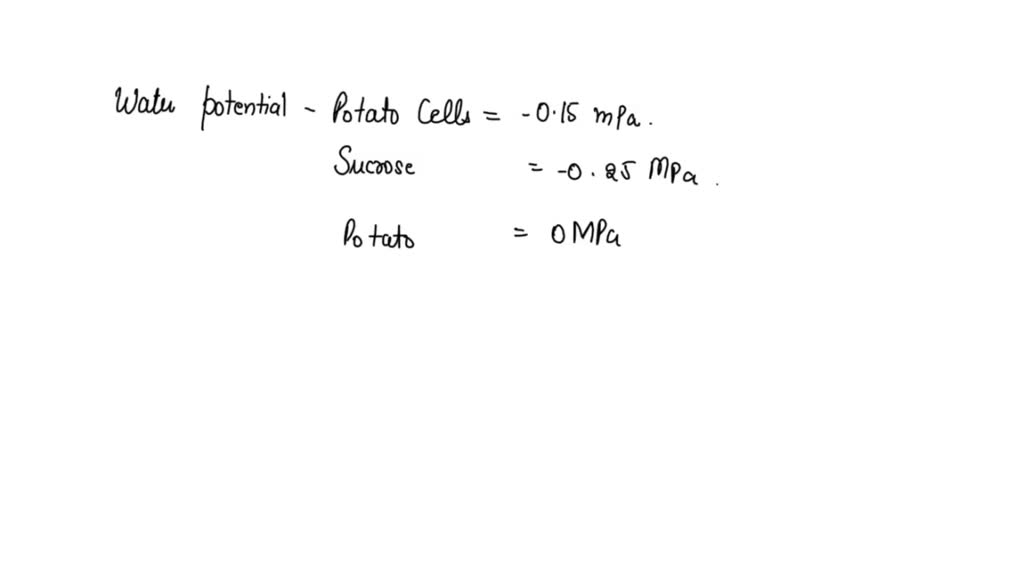 Water potential - Potato Cells = -0.15 mPa.
Sucrose = -0.25 MPa.
Potato = 0 MPa